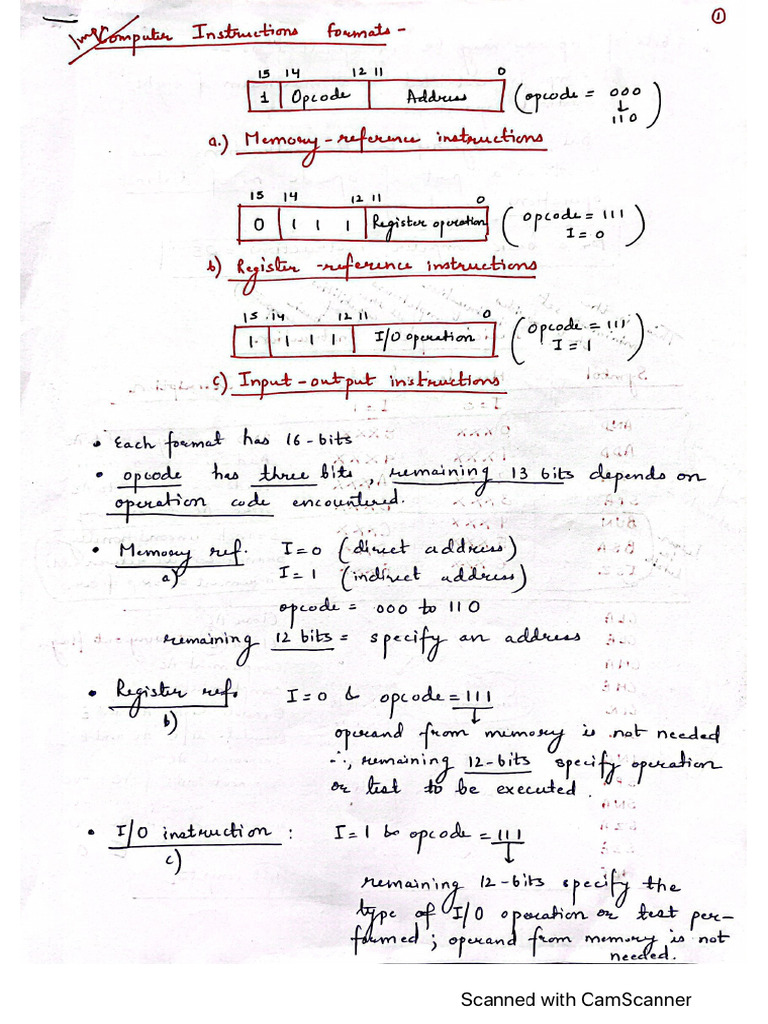 ①
Imp Computer Instructions formats -
15 14 12 11 0
1 Opcode Address (opcode = 000 ↓ 110)
a.) Memory-reference instructions
15 14 12 11 0
0 1 1 1 Register operation (opcode = 111 I = 0)
b) Register-reference instructions
15 14 12 11 0
1 1 1 1 I/O operation (opcode = 111 I = 1)
c) Input-output instructions
• Each format has 16-bits
• opcode has three bits, remaining 13 bits depends on
operation code encountered.
• Memory ref. I=0 (direct address)
a) I=1 (indirect address)
opcode = 000 to 110
remaining 12 bits = specify an address
• Register ref. I=0 & opcode = 111
b) ↓
operand from memory is not needed
∴, remaining 12-bits specify operation
or test to be executed.
• I/O instruction : I=1 & opcode = 111
c) ↓
remaining 12-bits specify the
type of I/O operation or test per-
formed ; operand from memory is not
needed.
Scanned with CamScanner